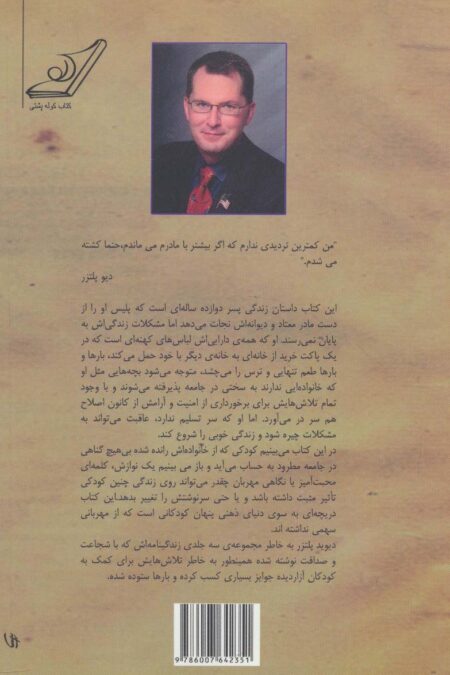 کتاب کوله پشتی
"من کمترین تردیدی ندارم که اگر بیشتر با مادرم می ماندم،حتما کشته
می شدم."
دیو پلتزر
این کتاب داستان زندگی پسر دوازده ساله‌ای است که پلیس او را از
دست مادر معتاد و دیوانه‌اش نجات می‌دهد اما مشکلات زندگی‌اش به
پایان نمی‌رسند. او که همه‌ی دارایی‌اش لباس‌های کهنه‌ای است که در
یک پاکت خرید از خانه‌ای به خانه‌ی دیگر با خود حمل می‌کند، بارها و
بارها طعم تنهایی و ترس را می‌چشد، متوجه می‌شود بچه‌هایی مثل او
که خانواده‌ایی ندارند به سختی در جامعه پذیرفته می‌شوند و با وجود
تمام تلاش‌هایش برای برخورداری از امنیت و آرامش از کانون اصلاح
هم سر در می‌آورد. اما او که سر تسلیم ندارد، عاقبت می‌تواند به
مشکلات چیره شود و زندگی خوبی را شروع کند.
در این کتاب می‌بینیم کودکی که از خانواده‌اش رانده شده بی‌هیچ گناهی
در جامعه مطرود به حساب می‌آید و باز می بینیم یک نوازش، کلمه‌ای
محبت‌آمیز یا نگاهی مهربان چقدر می‌تواند روی زندگی چنین کودکی
تأثیر مثبت داشته باشد و یا حتی سرنوشتش را تغییر بدهد.این کتاب
دریچه‌ای به سوی دنیای ذهنی پنهان کودکانی است که از مهربانی
سهمی نداشته اند.
دیوید پلتزر به خاطر مجموعه‌ی سه جلدی زندگینامه‌اش که با شجاعت
و صداقت نوشته شده همینطور به خاطر تلاش‌هایش برای کمک به
کودکان آزاردیده جوایز بسیاری کسب کرده و بارها ستوده شده.
9 786007 642351